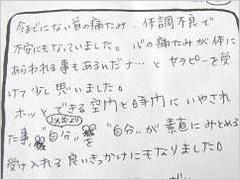 今までにない首の痛たみ、体調不良で
不安にもなっていました。心の痛たみが体に
あらわれる事もあるんだナ…と セラピーを受
けて少し思いました。
ホッとできる空間と時間にいやされ
た事、"自分"を "自分"が素直にみとめ
受け入れる良いきっかけにもなりました。